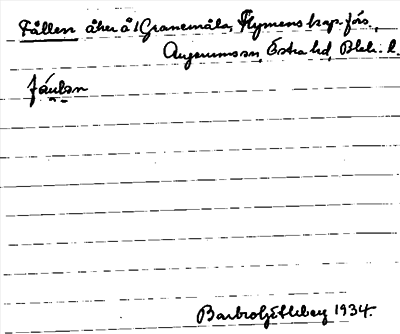 Fållen åker å 1 Granemåla, Flymens kap. förs.
Augerums sn, Östra hd, Blek. l.
fåulən
Barbro Ljettleberg 1934.